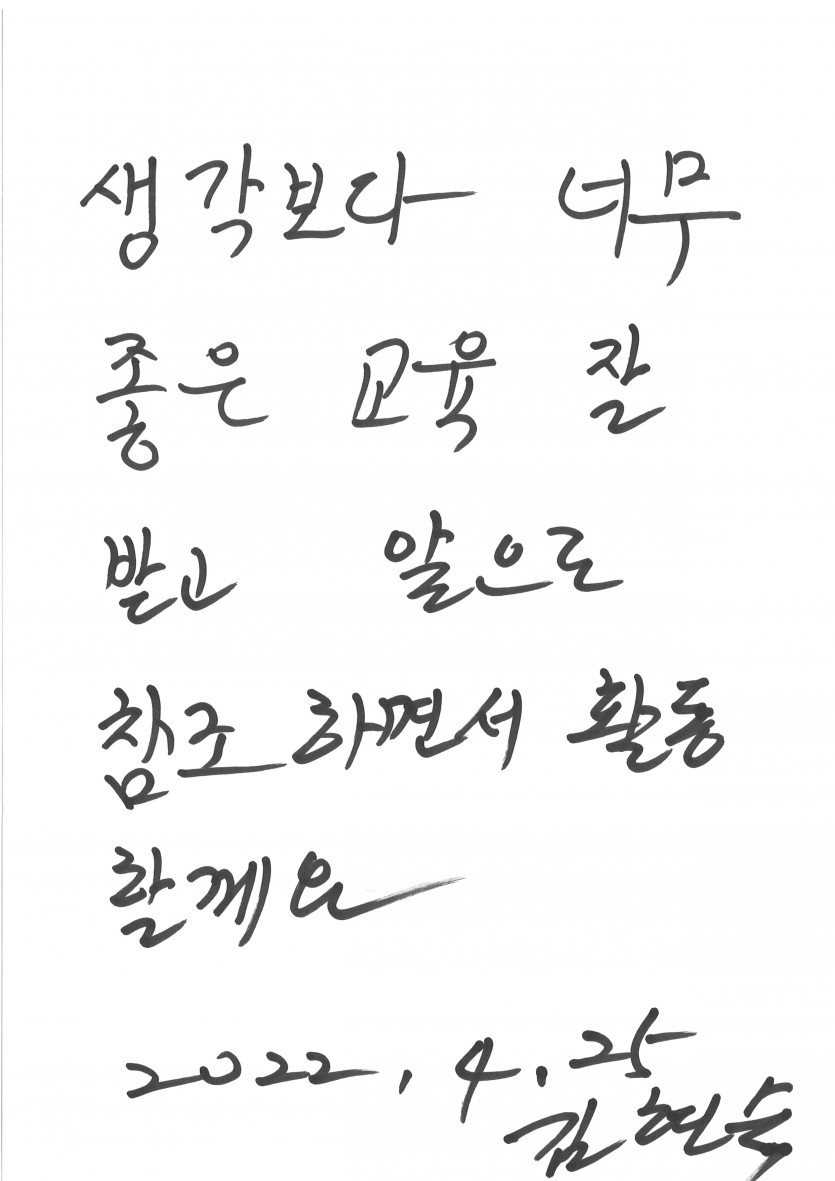 생각보다 너무
좋은 교육 잘
받고 앞으로
참조 하면서 활동
할께요
2022, 4, 25
김현숙